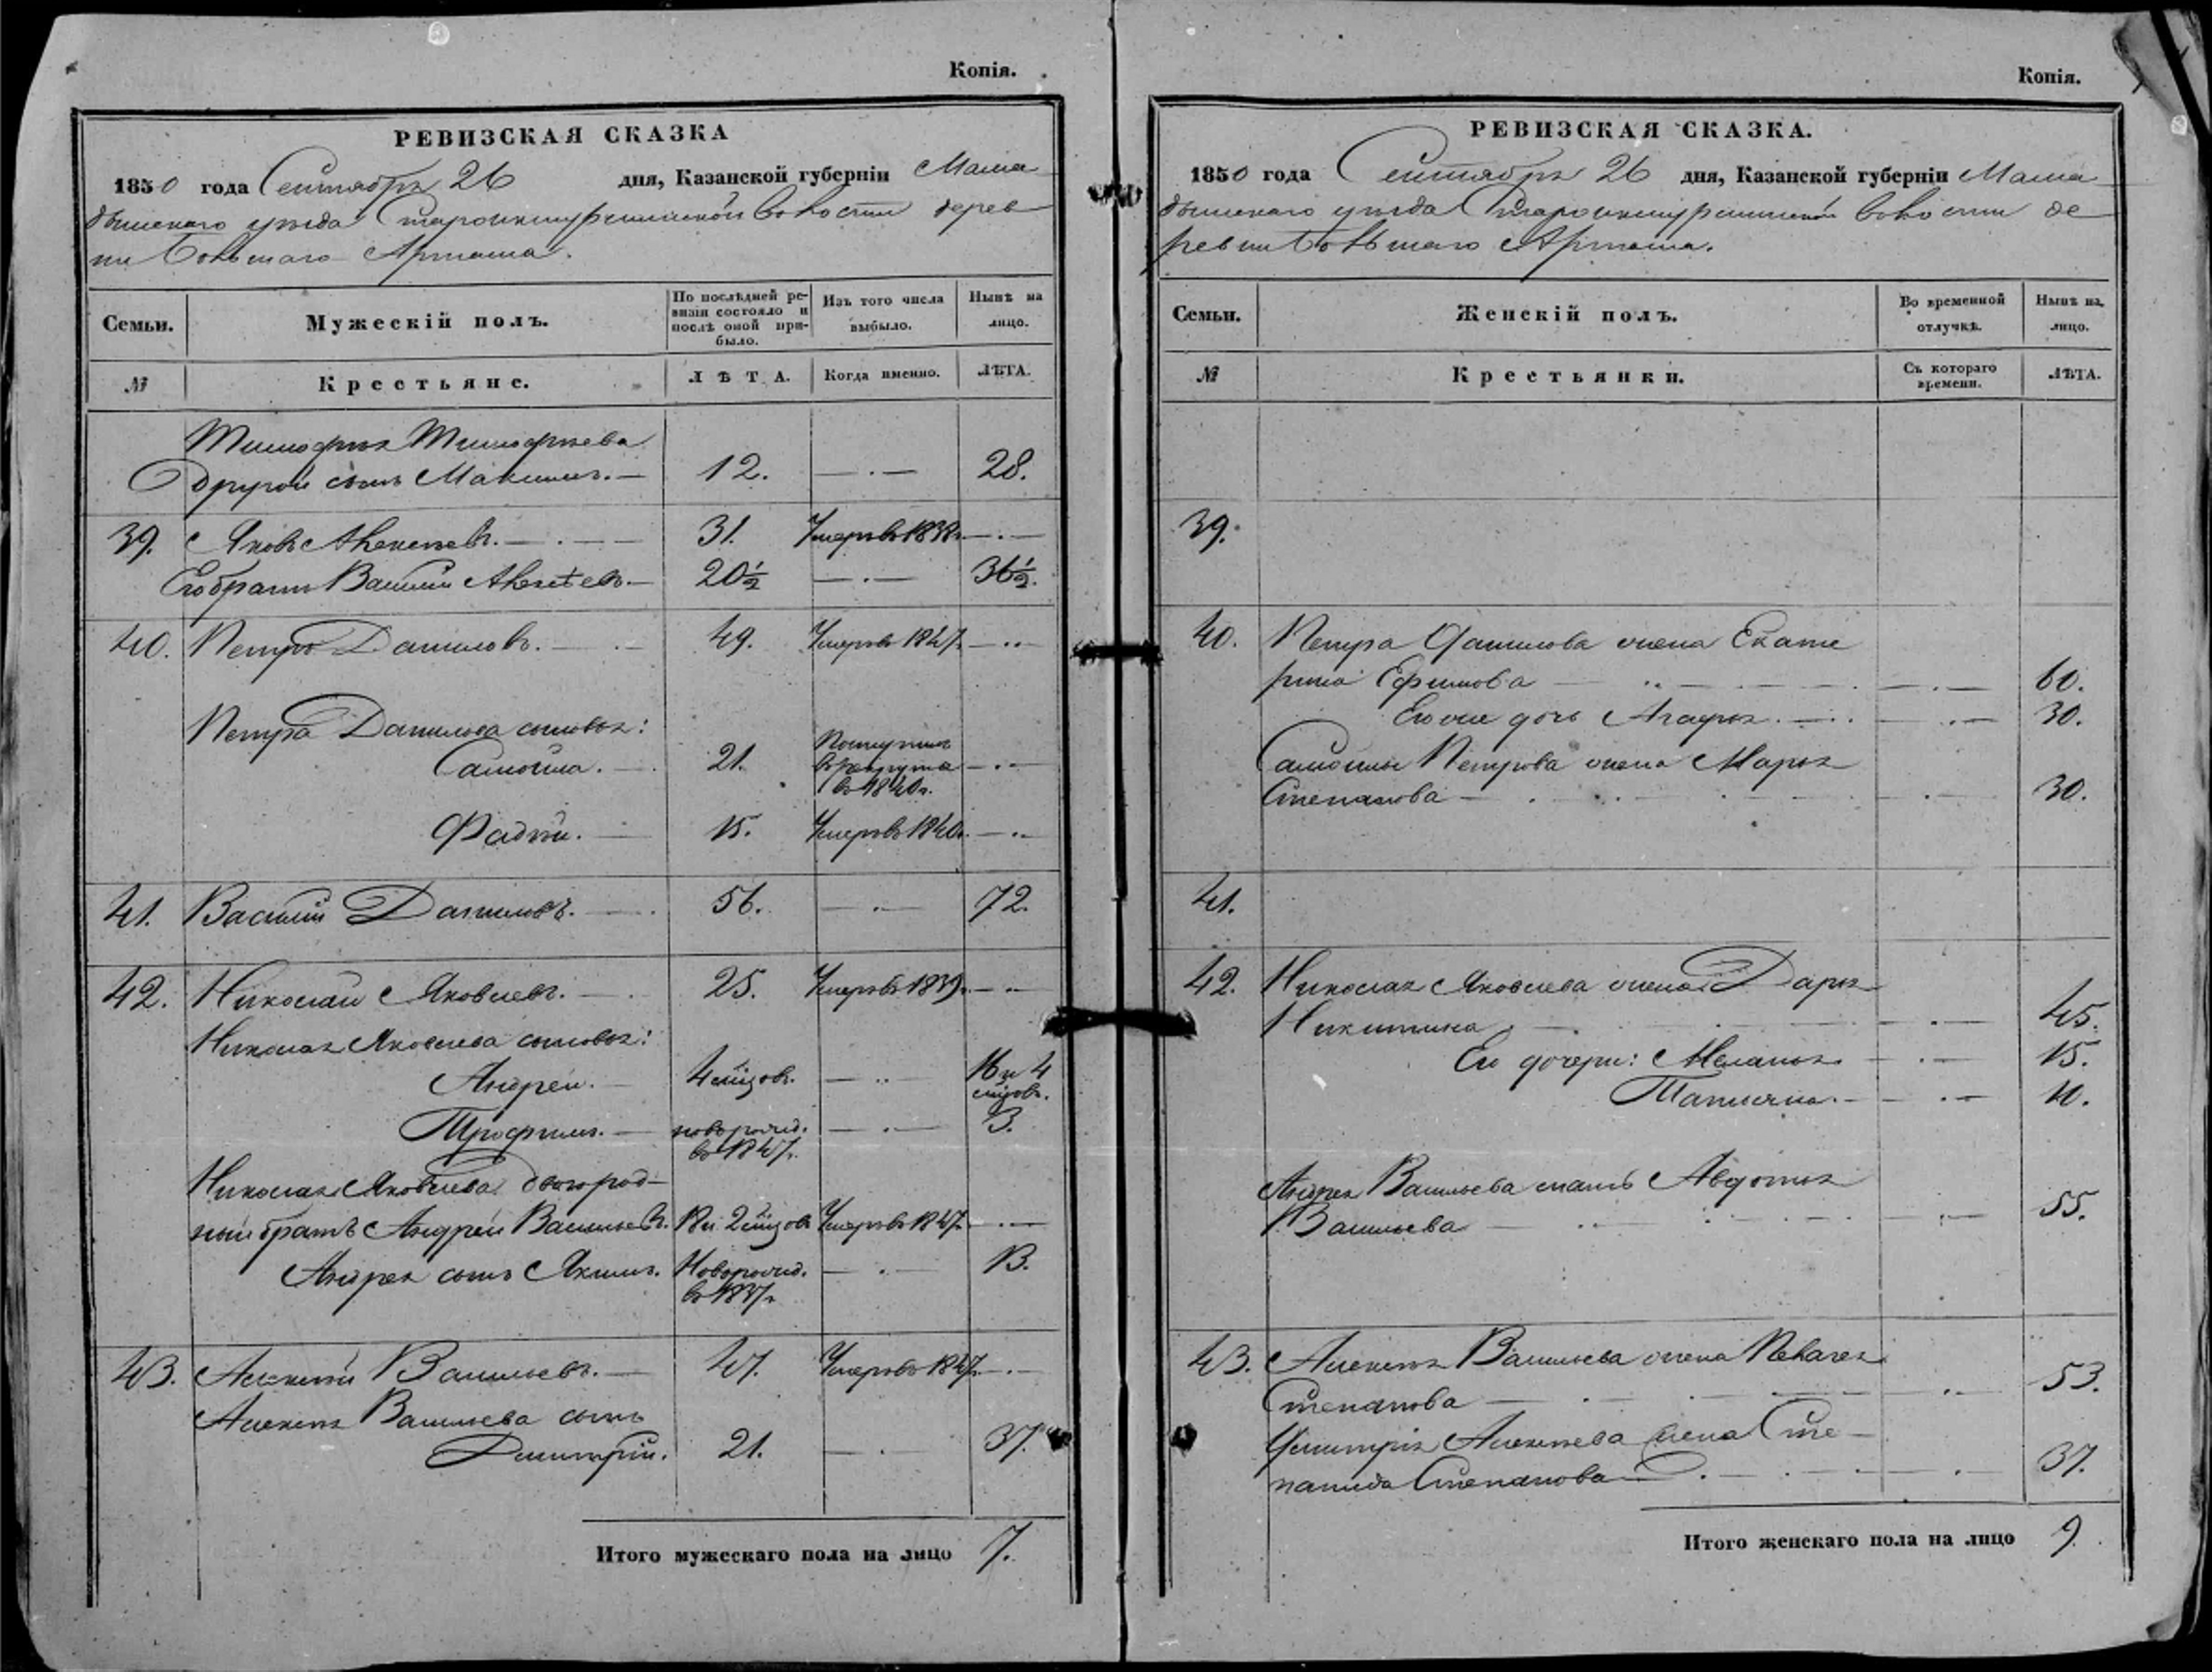 Копія.
РЕВИЗСКАЯ СКАЗКА
1850 года Сентября 26 дня, Казанской губерніи Мама
дышскаго уѣзда Волости дерев
ни Большаго Арташа.
Семьи. Мужескій полъ. По послѣдней ре- Изъ того числа Нынѣ на
визіи состояло и выбыло. лицо.
послѣ оной при-
было.
№ Крестьяне. ЛѢТА. Когда именно. ЛѢТА.
Тимофея Тимофѣева
другой сынъ Максимъ. 12. 28.
39. Яковъ Алексѣевъ. 31. Умеръ въ 1838г.
Его братъ Василій Алексѣевъ 20½ 36½.
40. Петръ Даниловъ. 49. Умеръ въ 1847г.
Петра Данилова сыновья:
Самойла. 21. Поступилъ
въ рекруты
въ 1840г.
Фадѣй. 15. Умеръ въ 1840г.
41. Василій Даниловъ. 56. 72.
42. Николай Яковлевъ. 25. Умеръ въ 1839г.
Николая Яковлева сыновья:
Андрей. 4 мѣсцовъ. 16 и 4
мѣсцовъ.
Трофимъ. новорожд. 3.
въ 1847г.
Николая Яковлева двоюрод-
ный братъ Андрей Васильевъ. 18 и 2 мѣсцовъ Умеръ въ 1847г.
Андрея сынъ Якимъ. Новорожд. 13.
въ 1837г.
43. Алексѣй Васильевъ. 47. Умеръ въ 1847г.
Алексѣя Васильева сынъ
Дмитрій. 21. 37.
Итого мужескаго пола на лицо 7.
Копія.
РЕВИЗСКАЯ СКАЗКА.
1850 года Сентября 26 дня, Казанской губерніи Мама
дышскаго уѣзда волости де
ревни Большаго Арташа.
Семьи. Женскій полъ. Во временной Нынѣ на
отлучкѣ. лицо.
№ Крестьянки. Съ котораго ЛѢТА.
времени.
39.
40. Петра Данилова жена Екате
рина Ефимова 60.
Его же дочь Агафья. 30.
Самойлы Петрова жена Марья
Степанова 30.
41.
42. Николая Яковлева жена Дарья
Никитина 45.
Его дочери: Меланья 15.
Татьяна. 10.
Андрея Васильева мать Авдотья
Васильева 55.
43. Алексѣя Васильева жена Пелагея
Степанова 53.
Дмитрія Алексѣева жена Сте-
панида Степанова 37.
Итого женскаго пола на лицо 9.